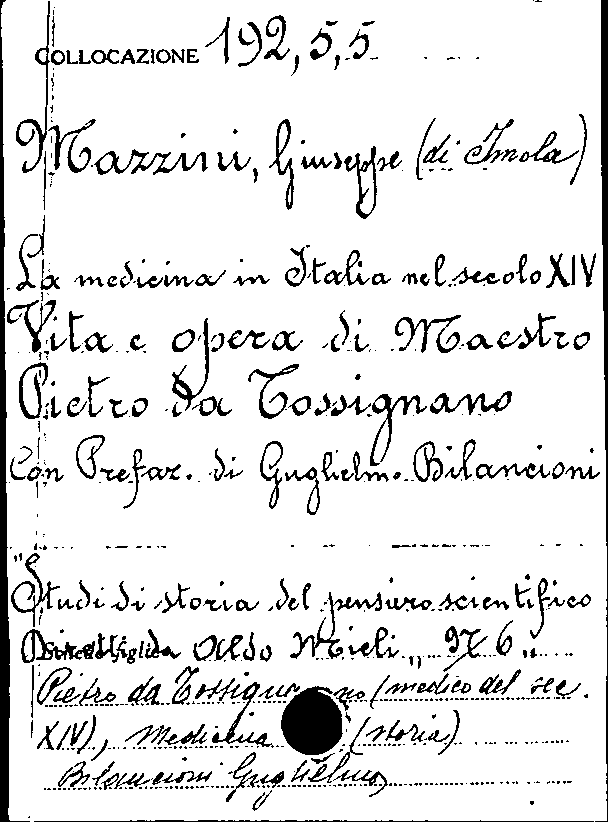 COLLOCAZIONE 192,5,5
Mazzini, Giuseppe (di Imola)
La medicina in Italia nel secolo XIV
Vita e opera di Maestro
Pietro da Tossignano
Con Prefaz. di Guglielmo Bilancioni
"Studi di storia del pensiero scientifico
Diretti da Aldo Mieli„ N 6„
Pietro da Tossignano (medico del sec.
XIV), Medicina (storia)
Bilancioni Guglielmo